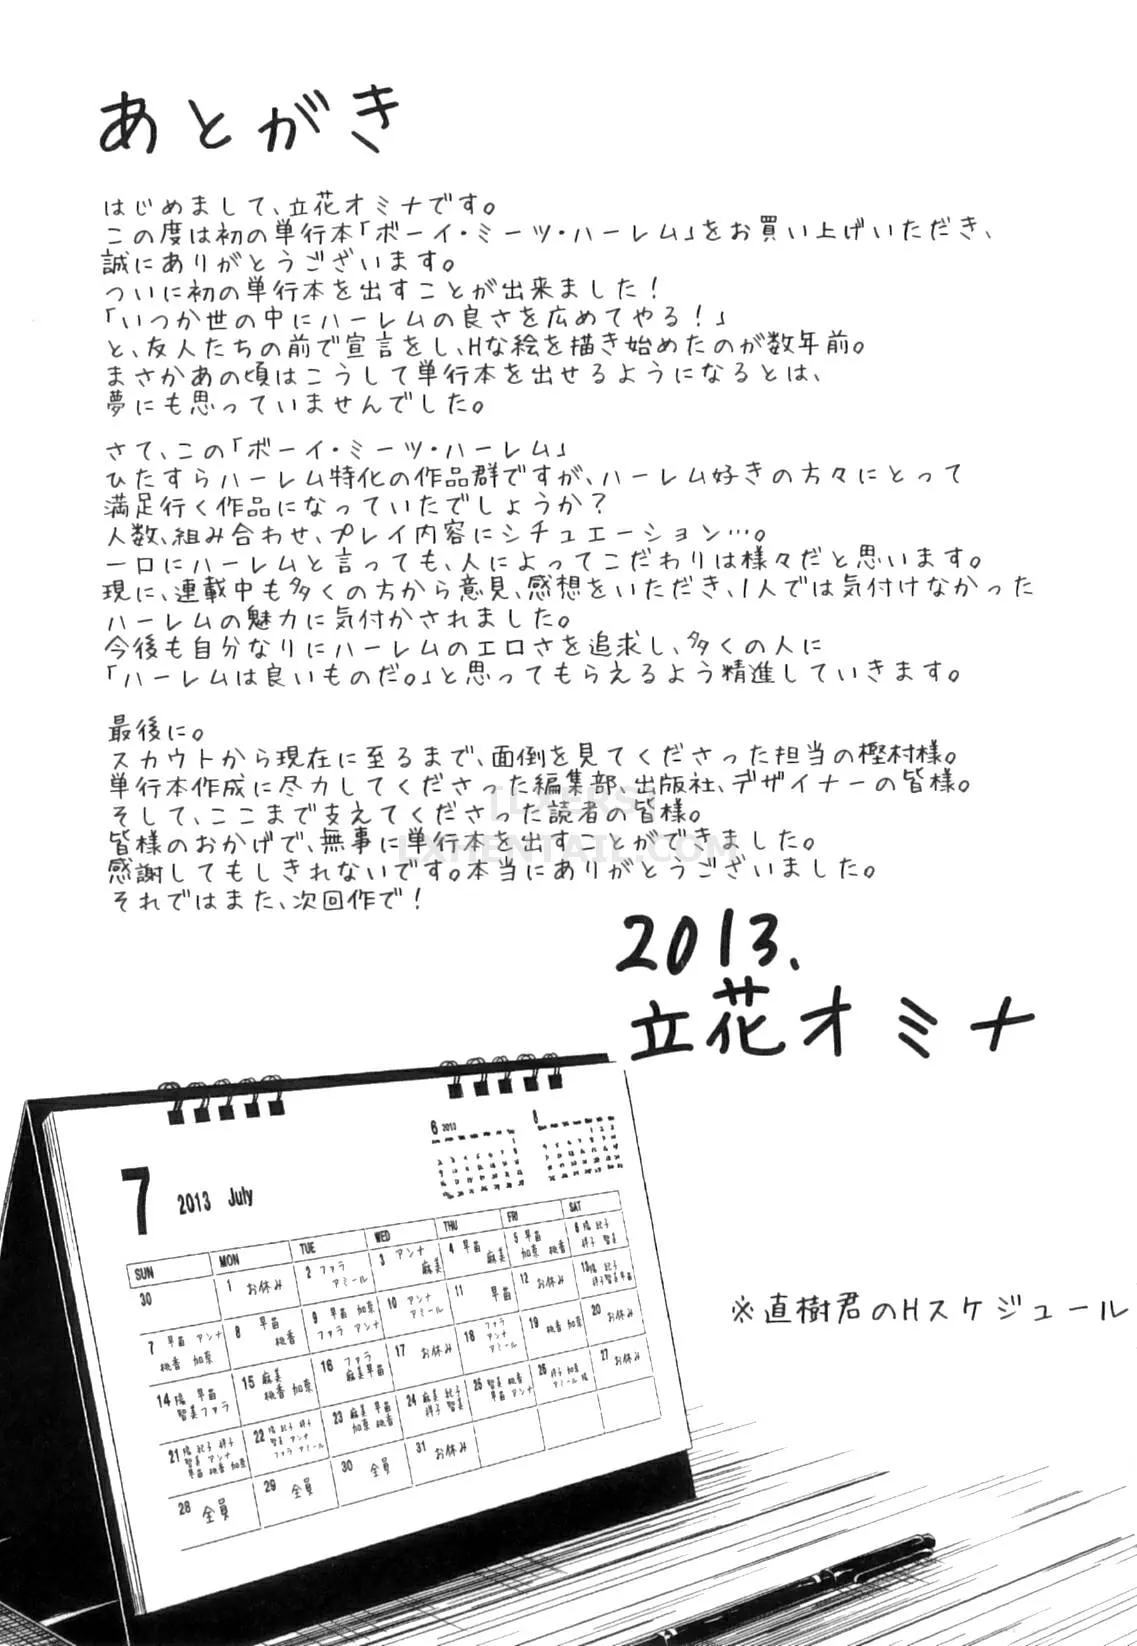 あとがき
はじめまして、立花オミナです。
この度は初の単行本「ボーイ・ミーツ・ハーレム」をお買い上げいただき、
誠にありがとうございます。
ついに初の単行本を出すことが出来ました！
「いつか世の中にハーレムの良さを広めてやる！」
と、友人たちの前で宣言をし、Hな絵を描き始めたのが数年前。
まさかあの頃はこうして単行本を出せるようになるとは、
夢にも思っていませんでした。
さて、この「ボーイ・ミーツ・ハーレム」
ひたすらハーレム特化の作品群ですが、ハーレム好きの方々にとって
満足行く作品になっていたでしょうか？
人数、組み合わせ、プレイ内容にシチュエーション…。
一口にハーレムと言っても、人によってこだわりは様々だと思います。
現に、連載中も多くの方から意見、感想をいただき、1人では気付けなかった
ハーレムの魅力に気付かされました。
今後も自分なりにハーレムのエロさを追求し、多くの人に
「ハーレムは良いものだ。」と思ってもらえるよう精進していきます。
最後に。
スカウトから現在に至るまで、面倒を見てくださった担当の樫村様。
単行本作成に尽力してくださった編集部、出版社、デザイナーの皆様。
そして、ここまで支えてくださった読者の皆様。
皆様のおかげで、無事に単行本を出すことができました。
感謝してもしきれないです。本当にありがとうございました。
それではまた、次回作で！
2013.
立花オミナ
6 2013
8
7 2013 July
SUN MON TUE WED THU FRI SAT
30
1 お休み
2 ファラ アミール
3 アンナ 麻美
4 早苗 麻美
5 早苗 加奈 桃香
6
7 早苗 アンナ 桃香 加奈
8 早苗 桃香
9 早苗 加奈 ファラ アンナ
10 アンナ アミール
11 早苗
12 お休み
13
14 早苗 智美 ファラ
15 麻美 桃香 加奈
16 ファラ 麻美 早苗
17 お休み
18 ファラ アンナ アミール
19 桃香 加奈
20 お休み
21
22
23 麻美 早苗 加奈 桃香
24
25 智美 桃香 早苗 アンナ
26
27 お休み
28 全員
29 全員
30 全員
31 お休み
※直樹君のHスケジュール
LXHENTAI.COM